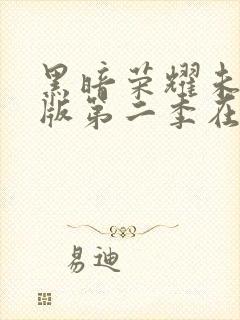 黑暗荣耀未
版第二季在
易迪